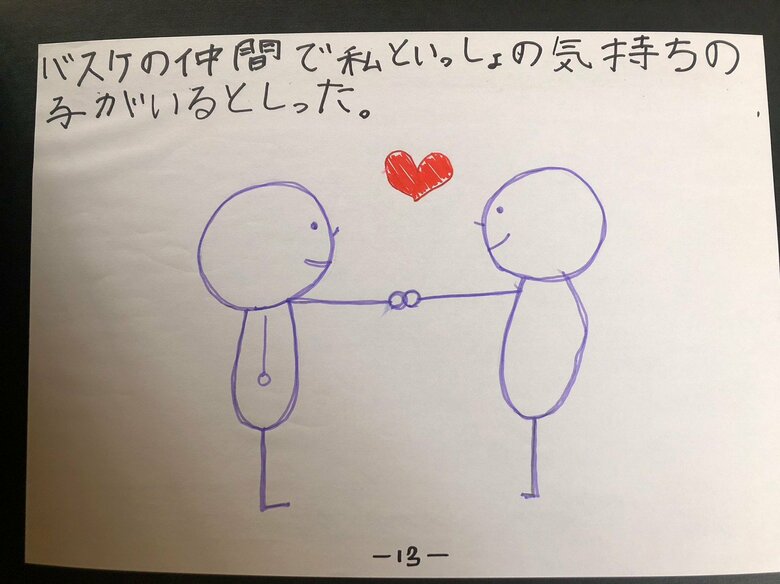 バスケの仲間で私といっしょの気持ちの
子がいるとしった。
-13-